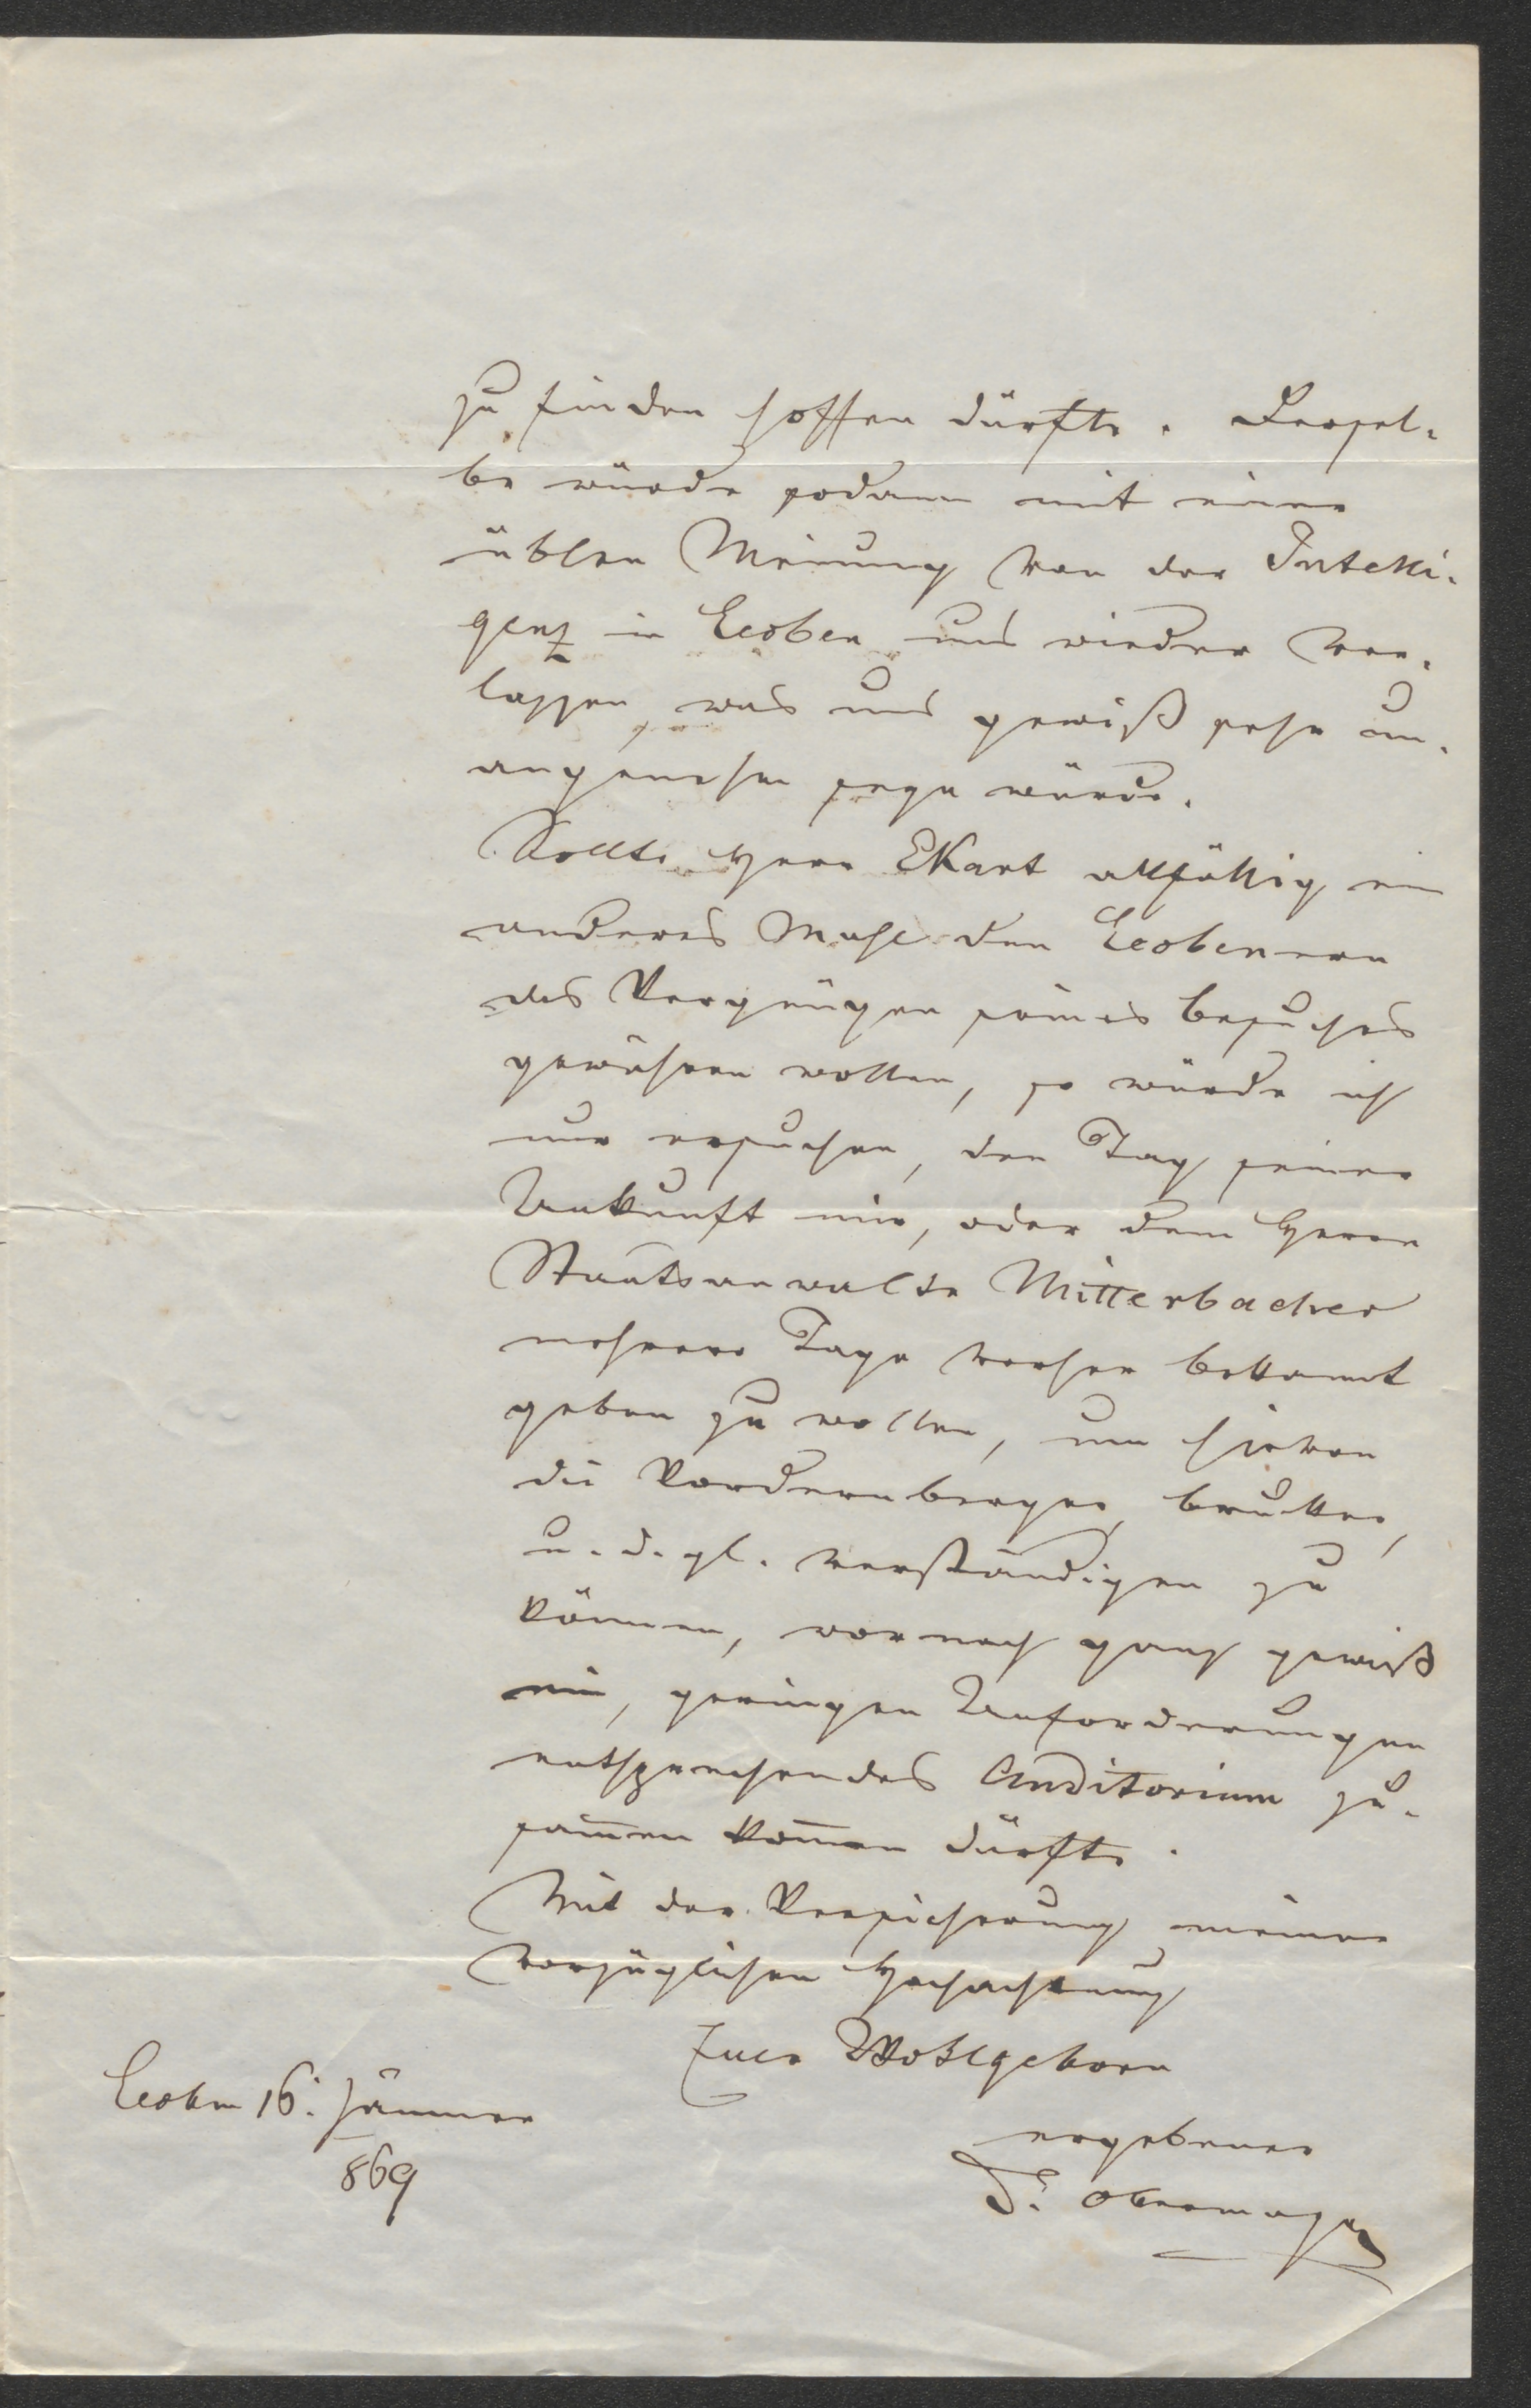 zu finden hoffen dürfte. Dersel-
be würde sodann mit einer
üblen Meinung von der Intelli-
genz in Leoben uns wieder ver-
lassen, was uns gewiß sehr un-
angenehm seyn würde.
Sollte Herr Ekart allfällig ein
anderes Mahl den Leobenern
das Vergnügen seines Besuches
gewähren wollen, so würde ich
nur ersuchen, den Tag seiner
Ankunft mir, oder dem Herrn
Staatsanwalte Mitterbacher
mehrere Tage vorher bekannt
geben zu wollen, um hievon
die Vordernberger, Brucker,
u. d. gl. verständigen zu
können, wornach ganz gewiß
ein, geringen Anforderungen
entsprechendes Auditorium zu-
sam̅en kom̅en dürfte.
Mit der Versicherung meiner
vorzüglichen Hochachtung
Euer Wohlgeborn
Leoben 16. Jänner
869
ergebener
Dr. Obermayer